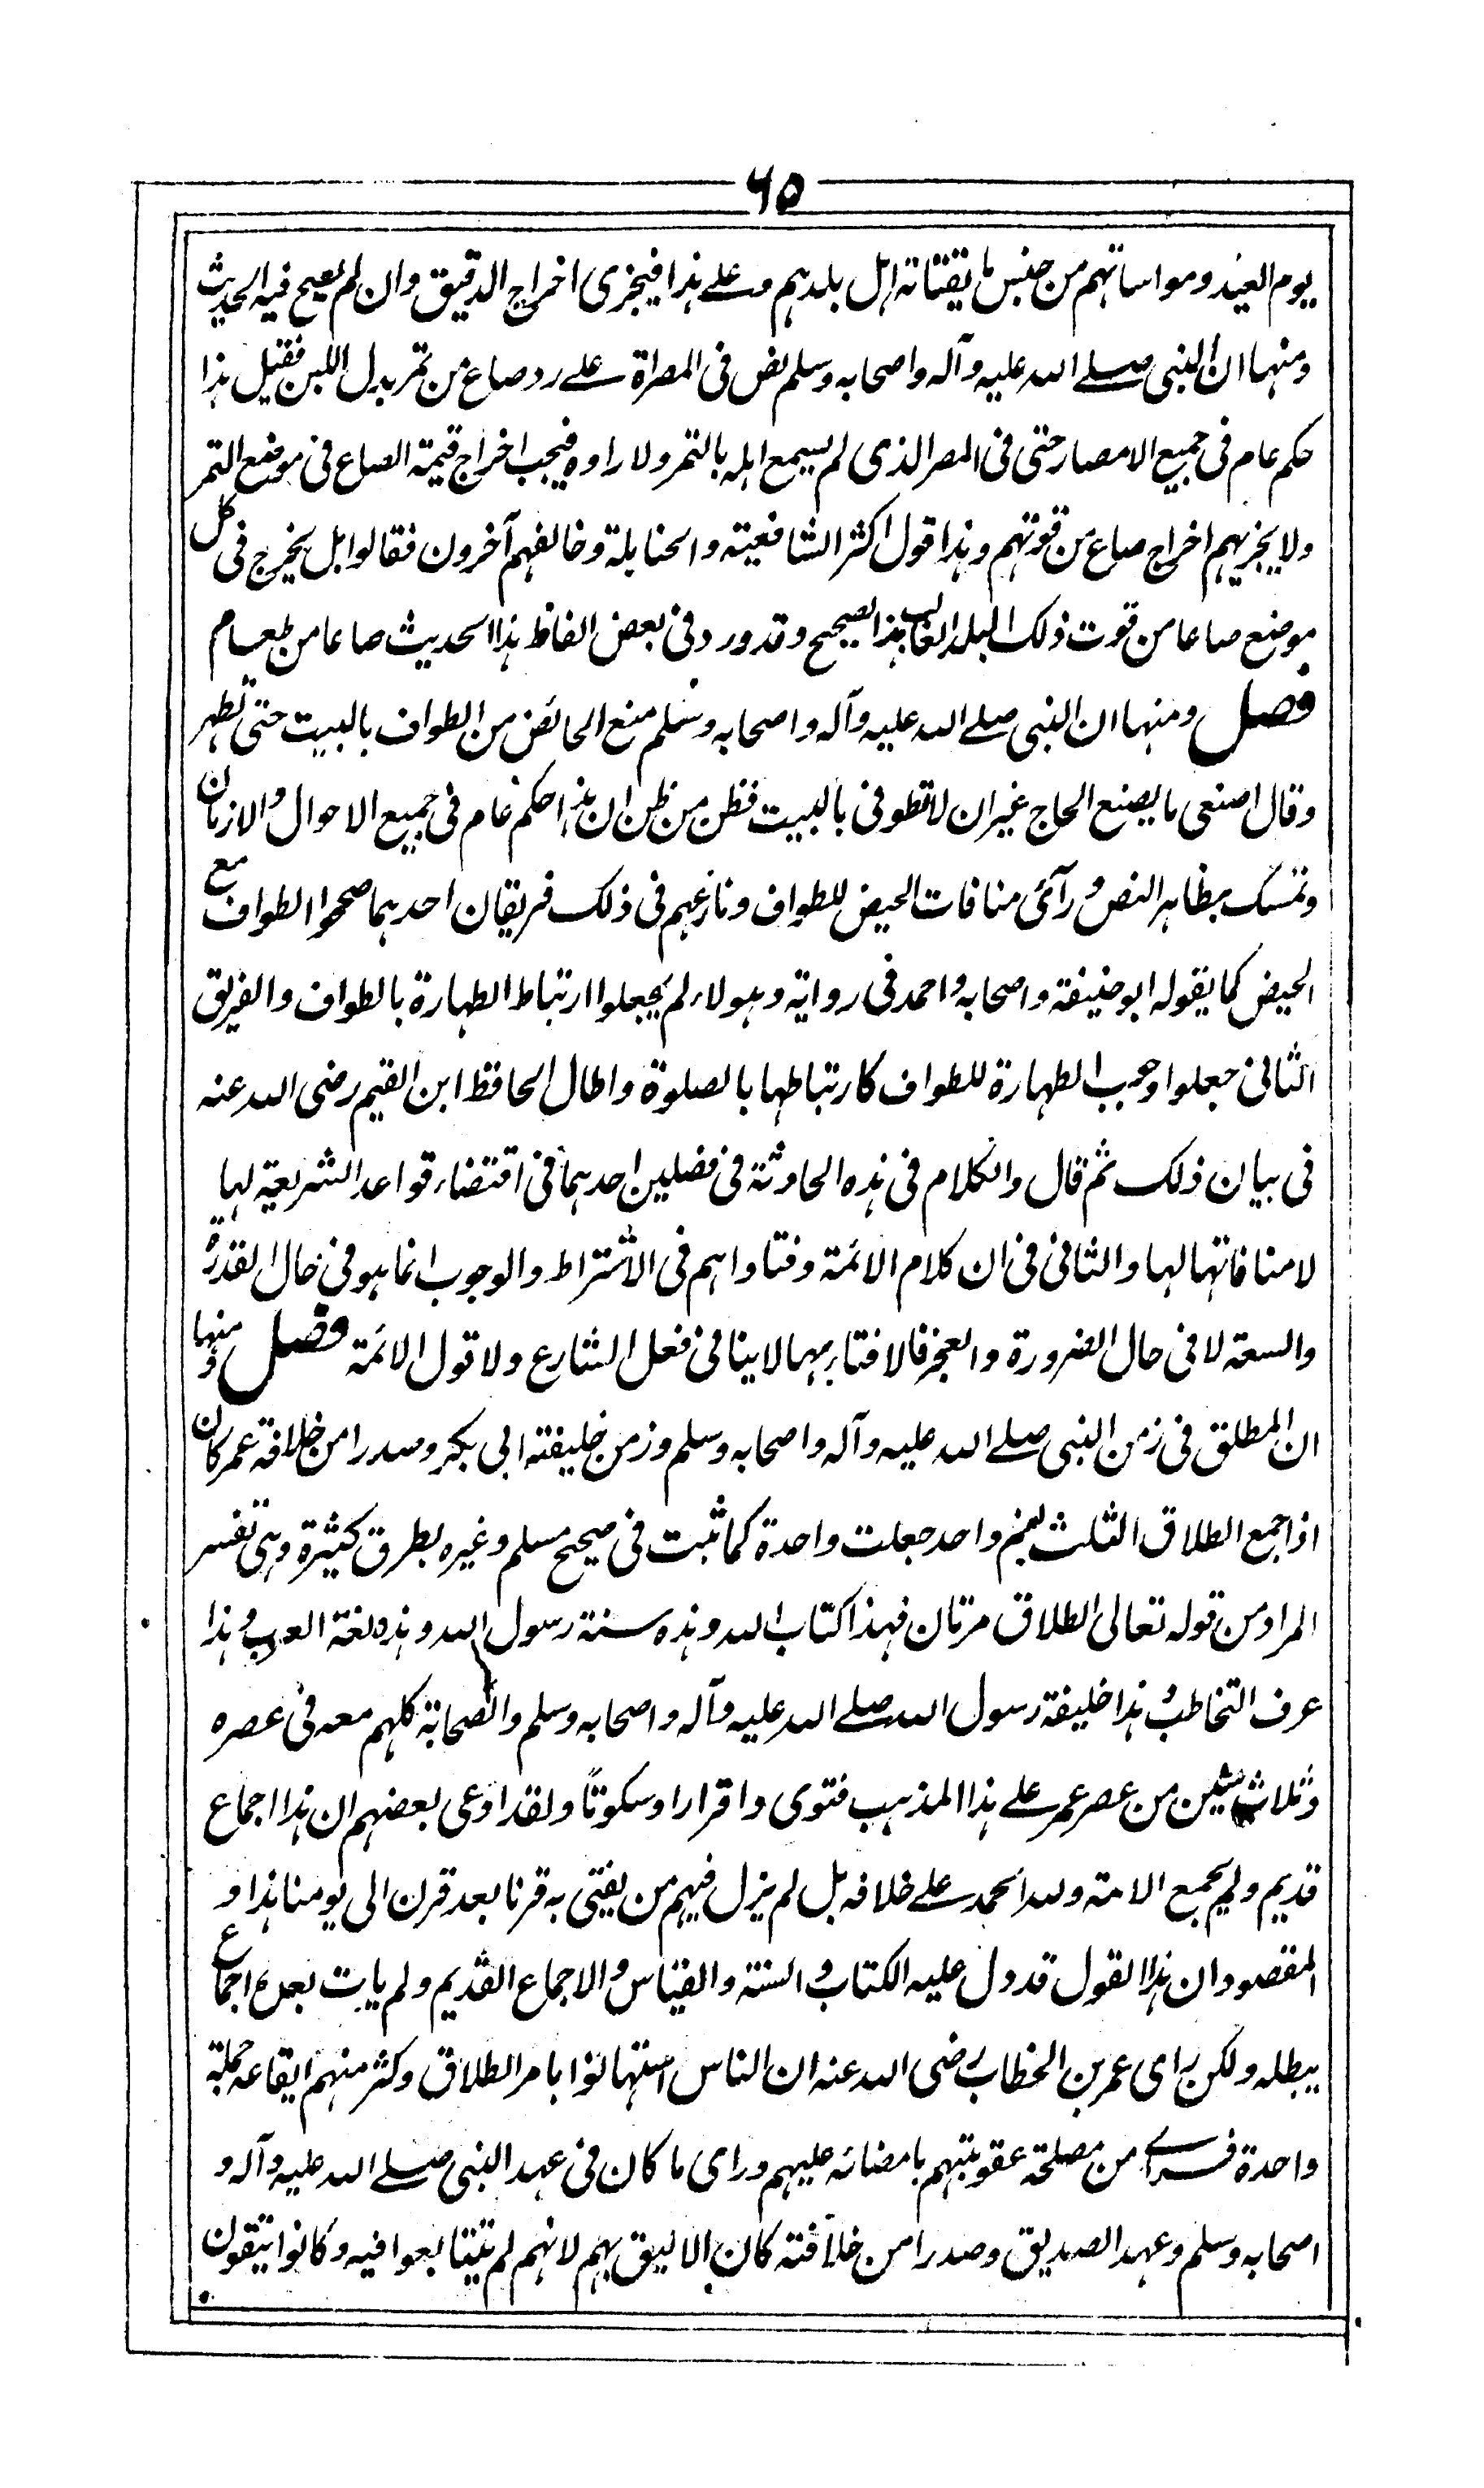 ٦٥
يوم العيد ومواساتهم من جنس ما يقتاته اهل بلدهم وعلے هذا فيجزى اخراج الدقيق وان لم يصح فيه الحديث
ومنها ان النبى صلے الله عليه وآله واصحابه وسلم نص فى المصراة علے رد صاع من تمر بدل اللبن فقيل هذا
حكم عام فى جميع الامصار حتى فى المصر الذى لم يسمع اهله بالتمر ولا راوه فيجب اخراج قيمة الصاع فى موضع التمر
ولا يجزيهم اخراج صاع من قوتهم وهذا قول اكثر الشافعية والحنابلة وخالفهم آخرون فقالوا بل يخرج فى كل
موضع صاعا من قوت ذلك البلد الغالب هذا الصحيح وقد ورد فى بعض الفاظ هذا الحديث صاعا من طعام
فصل ومنها ان النبى صلے الله عليه وآله واصحابه وسلم منع الحائض من الطواف بالبيت حتى تطهر
وقال اصنعى ما يصنع الحاج غير ان لا تطوفى بالبيت فظن من ظن ان هذا حكم عام فى جميع الاحوال والازمان
وتمسك بظاهر النص ورآى منافات الحيض للطواف ونازعهم فى ذلك فريقان احدهما صححوا الطواف مع
الحيض كما يقوله ابو حنيفة واصحابه واحمد فى رواية وهولاء لم يجعلوا ارتباط الطهارة بالطواف والفريق
الثانى جعلوا وجوب الطهارة للطواف كارتباطها بالصلوة واطال الحافظ ابن القيم رضى الله عنه
فى بيان ذلك ثم قال والكلام فى هذه الحادثة فى فصلين احدهما فى اقتضاء قواعد الشريعة لها
لا منافاتها لها والثانى فى ان كلام الائمة وفتاواهم فى الاشتراط والوجوب انما هو فى حال القدرة
والسعة لا فى حال الضرورة والعجز فالافتاء بها لا ينافى فعل الشارع ولا قول الائمة فصل ومنها
ان المطلق فى زمن النبى صلے الله عليه وآله واصحابه وسلم وزمن خليفته ابى بكر وصدرا من خلافة عمر كان
اذا جمع الطلاق الثلث بفم واحد جعلت واحدة كما ثبت فى صحيح مسلم وغيره بطرق كثيرة وهى تفسر
المراد من قوله تعالى الطلاق مرتان فهذا كتاب الله وهذه سنة رسول الله وهذه لغة العرب وهذا
عرف التخاطب وهذا خليفة رسول الله صلے الله عليه وآله واصحابه وسلم والصحابة كلهم معه فى عصره
وثلاث سنين من عصر عمر علے هذا المذهب فتوى واقرارا وسكوتا ولقد ادعى بعضهم ان هذا اجماع
قديم ولم يجمع الامة ولله الحمد علے خلافه بل لم يزل فيهم من يفتى به قرنا بعد قرن الى يومنا هذا و
المقصود ان هذا القول قد دل عليه الكتاب والسنة والقياس والاجماع القديم ولم يات بعده اجماع
يبطله ولكن راى عمر بن الخطاب رضى الله عنه ان الناس استهانوا بامر الطلاق وكثر منهم ايقاعه جملة
واحدة فراے من مصلحة عقوبتهم بامضائه عليهم وراى ما كان فى عهد النبى صلے الله عليه وآله و
اصحابه وسلم وعهد الصديق وصدرا من خلافته كان الاليق بهم لانهم لم يتتابعوا فيه وكانوا يتقون